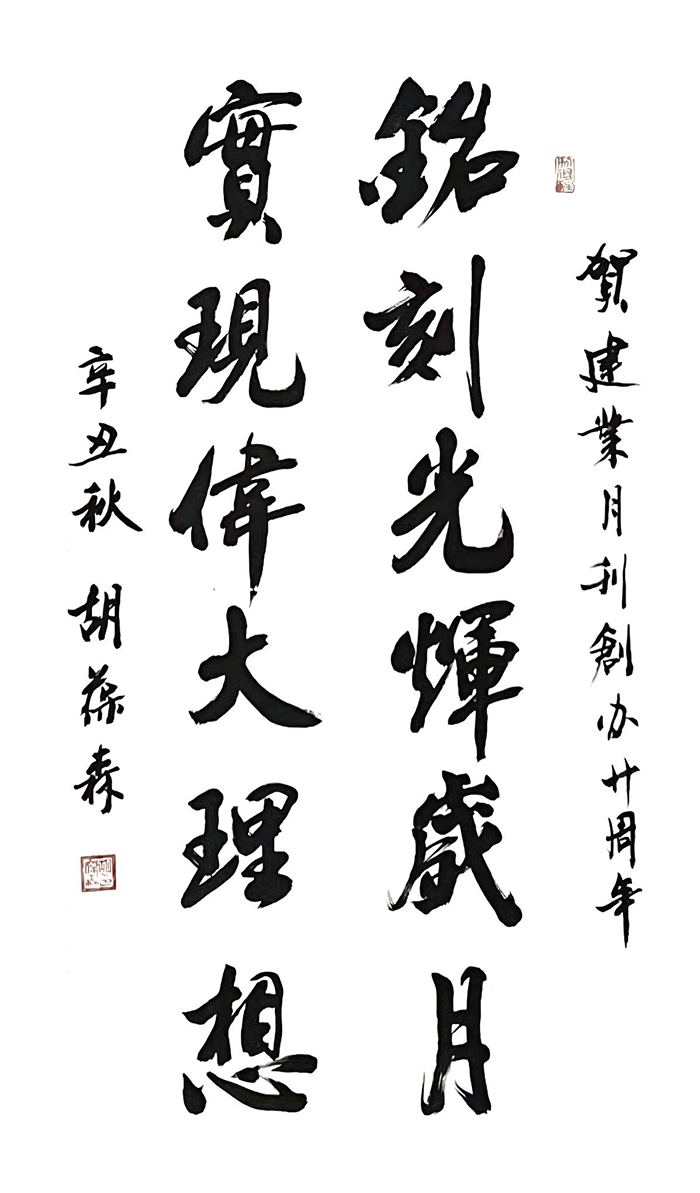 賀建業月刊創办廿周年
銘刻光輝歲月
實現偉大理想
辛丑秋 胡葆森